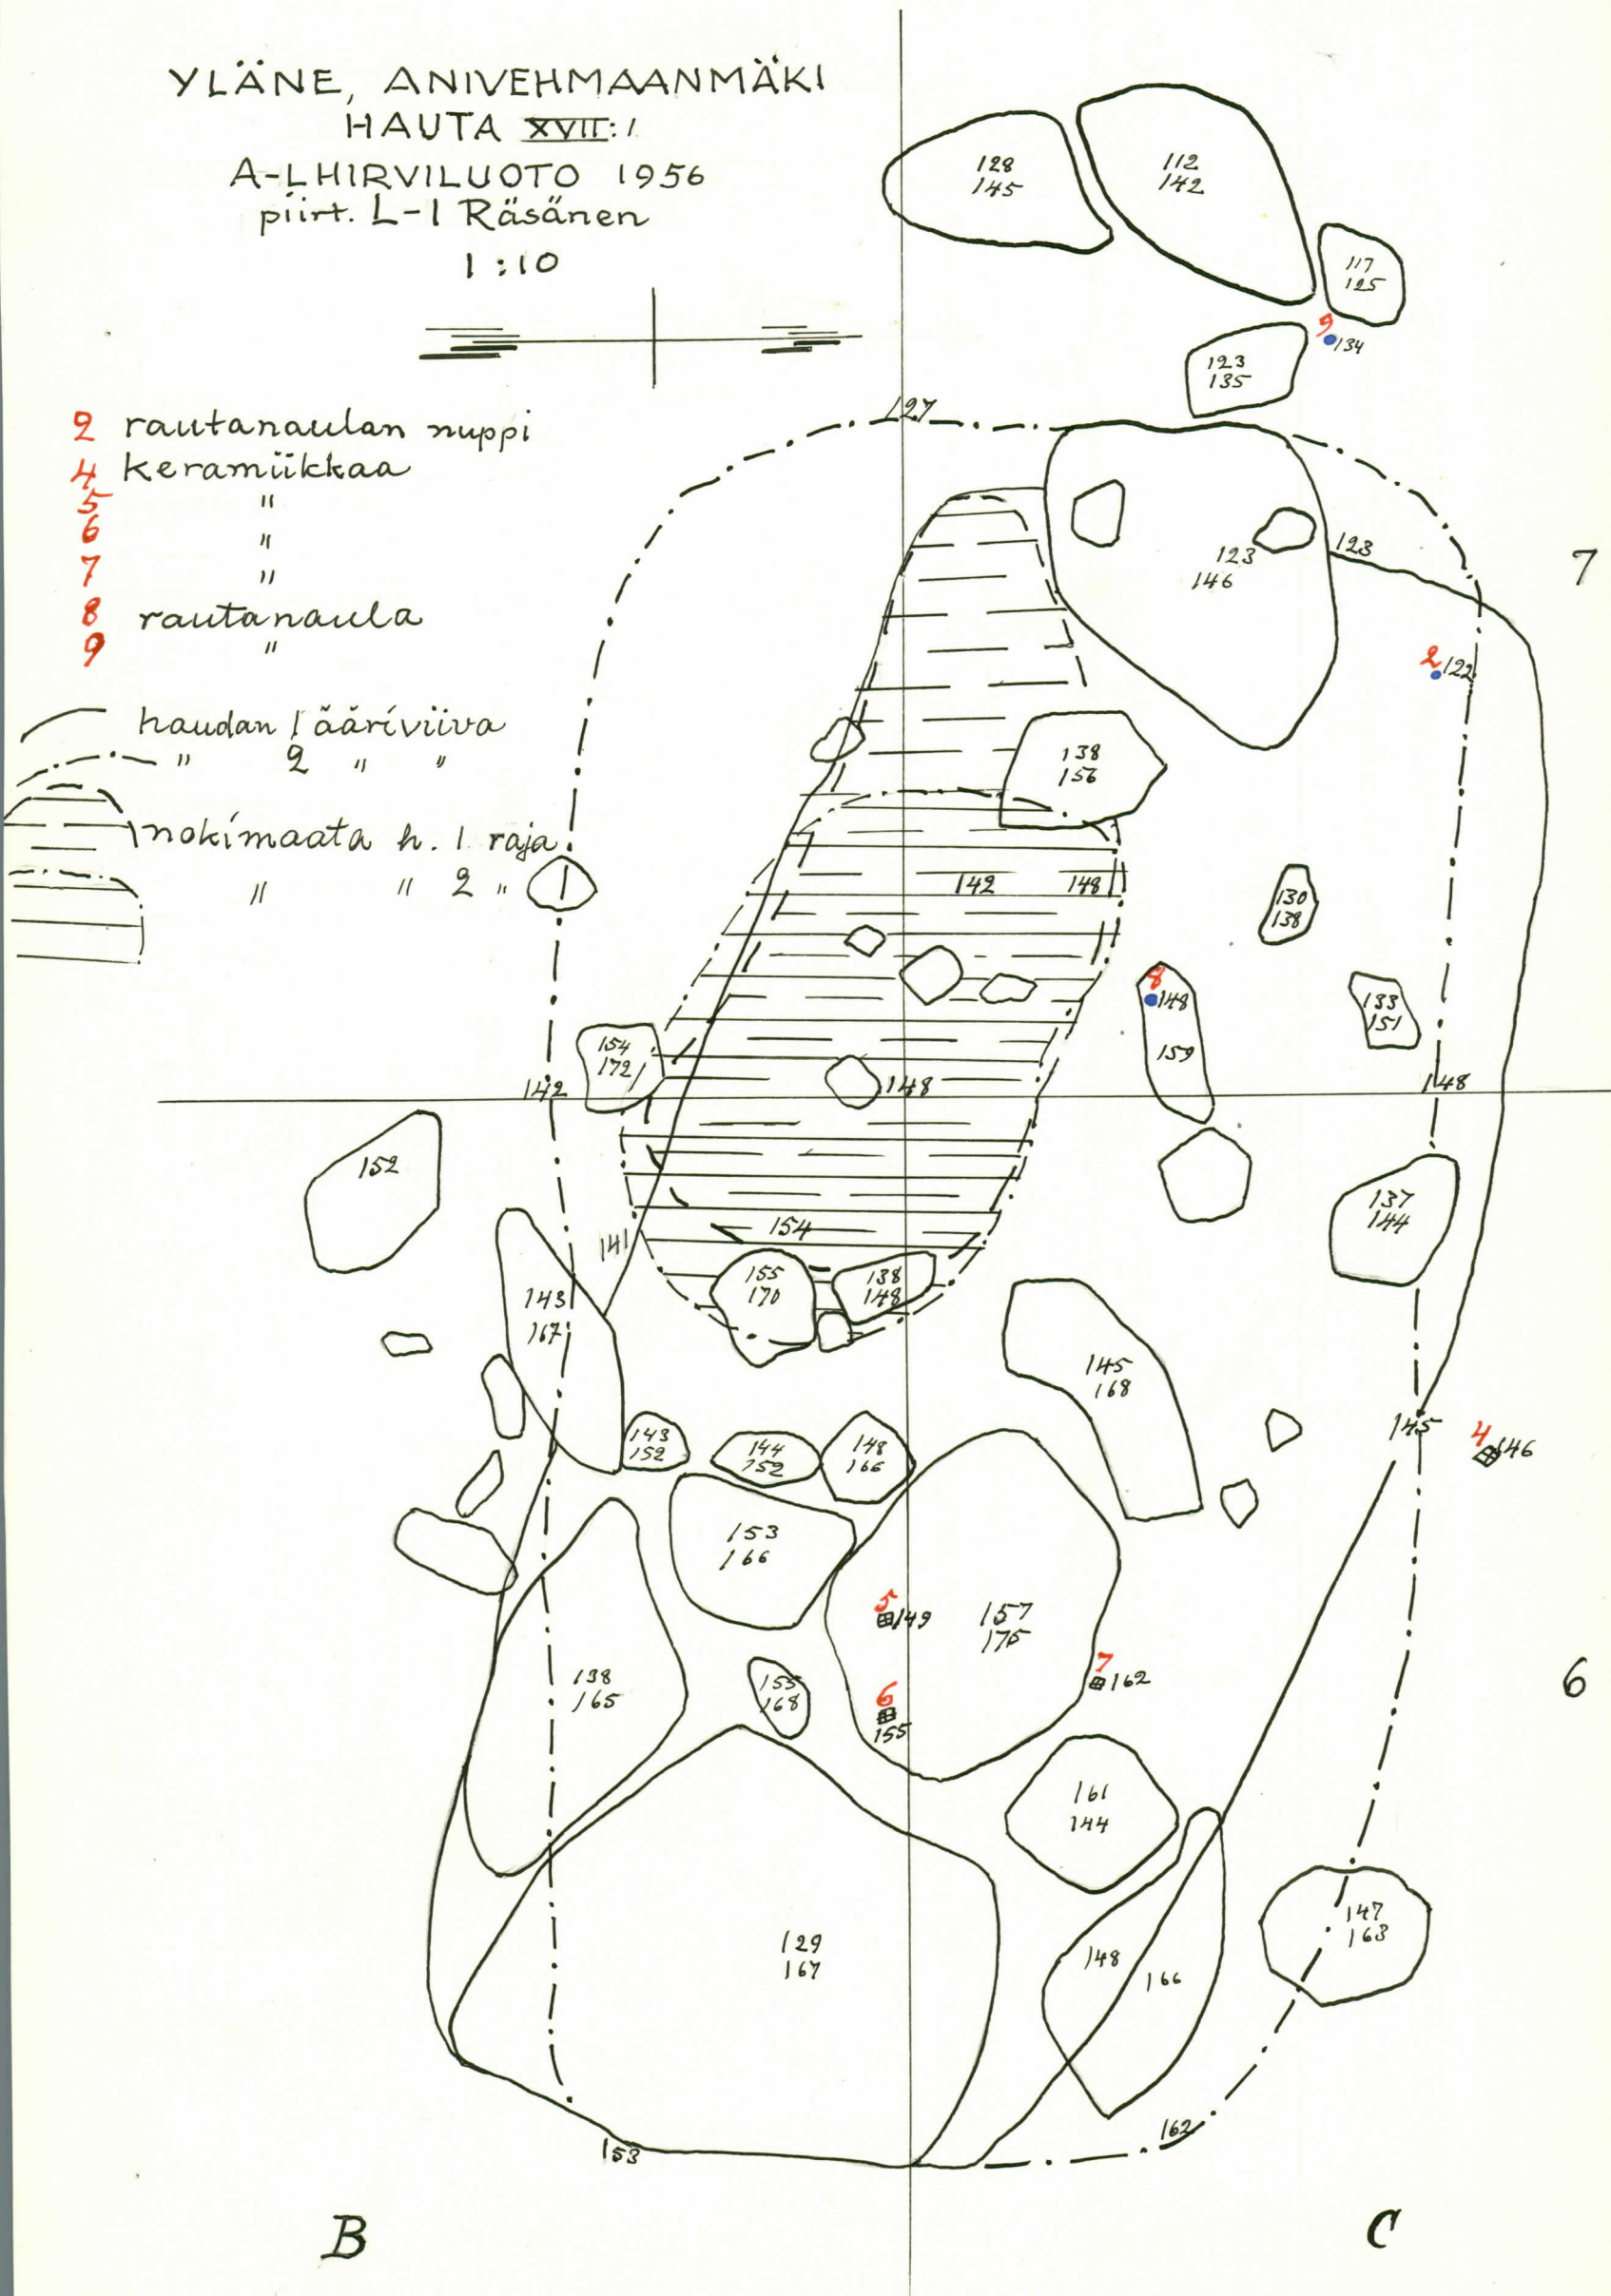 YLÄNE, ANIVEHMAANMÄKI
HAUTA XVII:1
A-LHIRVILUOTO 1956
piirt. L-I Räsänen
1:10
2 rautanaulan nuppi
4 keramiikkaa
5 "
6 "
7 "
8 rautanaula
9 "
haudan 1 ääriviiva
" 2 " "
nokimaata h. 1 raja
" " 2 "
128
145
112
142
117
125
9
134
123
135
127
123
146
123
7
2 122
138
156
142 148
130
138
8
148
159
133
151
154
172
142
148
148
152
137
144
141
154
155
170
138
148
143
167
145
168
145
4
146
143
152
144
152
148
166
153
166
5
149
157
175
7
162
6
155
6
138
165
155
168
161
144
147
163
129
167
148
166
153
162
B C